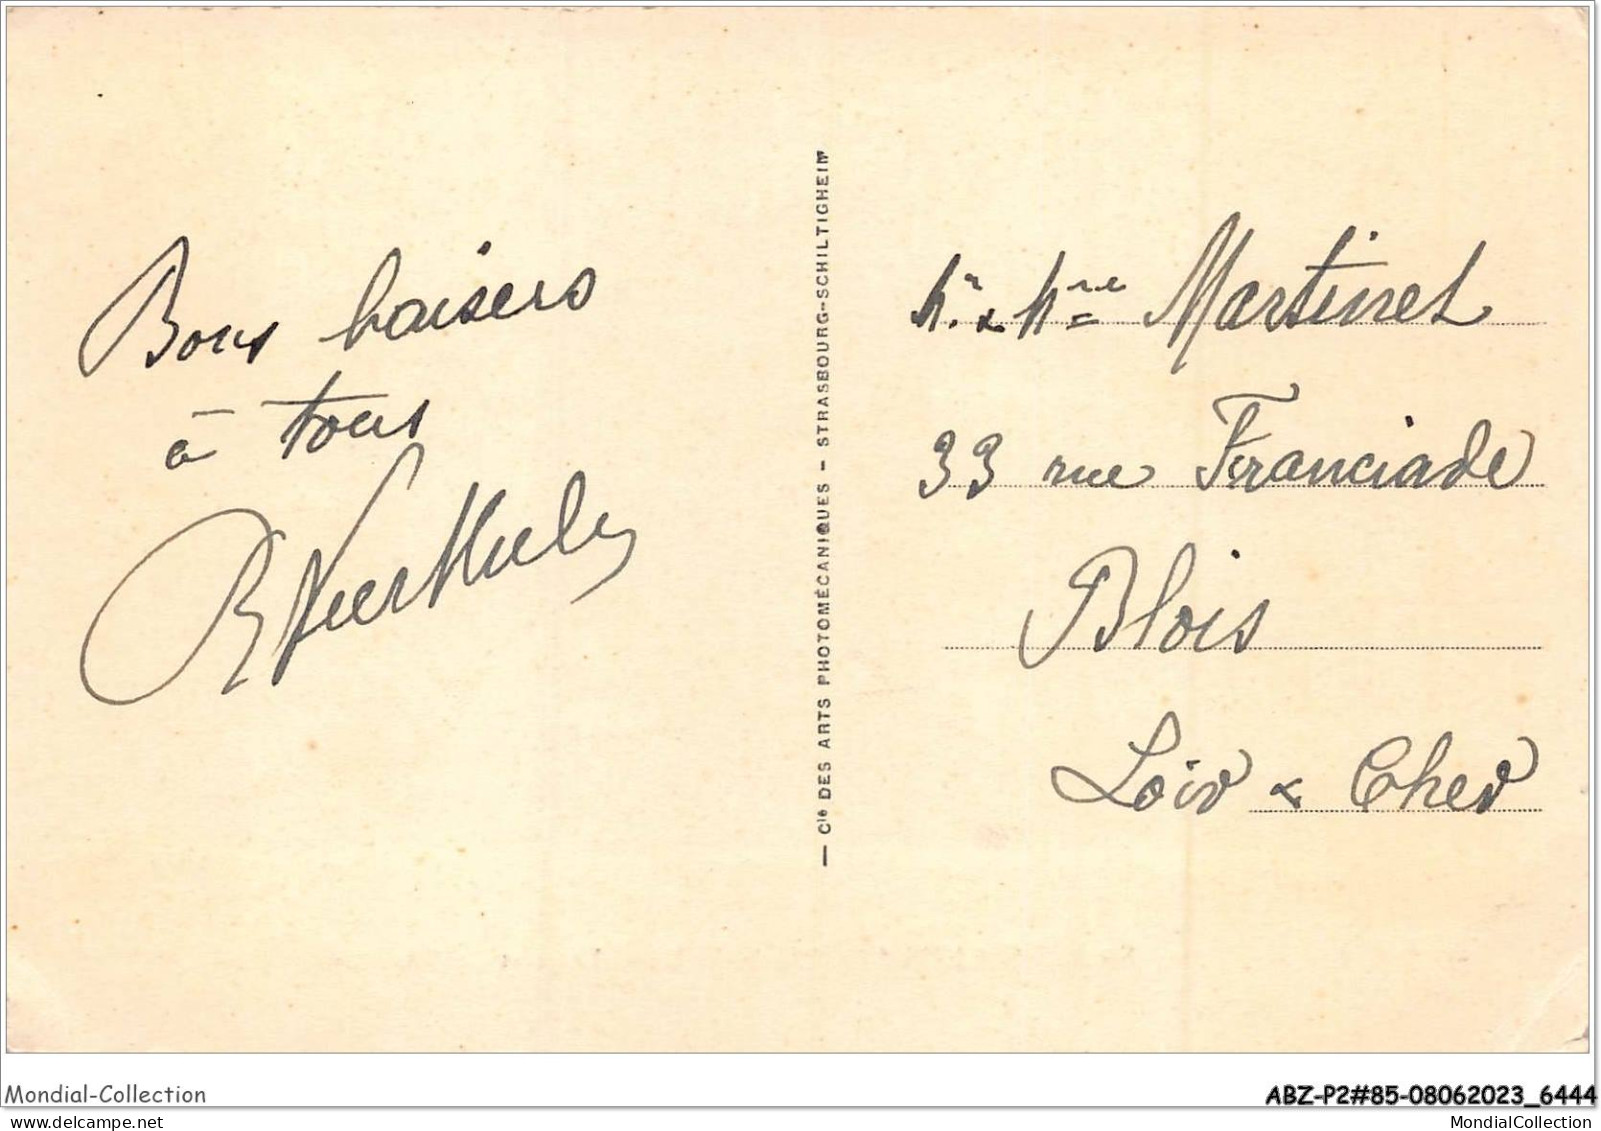 Bons baisers
à tous
— Cie DES ARTS PHOTOMÉCANIQUES - STRASBOURG-SCHILTIGHEIM
Mr & Mme Martinet
33 rue Franciade
Blois
Loir & Cher
Mondial-Collection
ABZ-P2#85-08062023_6444
delcampe.net
MondialCollection